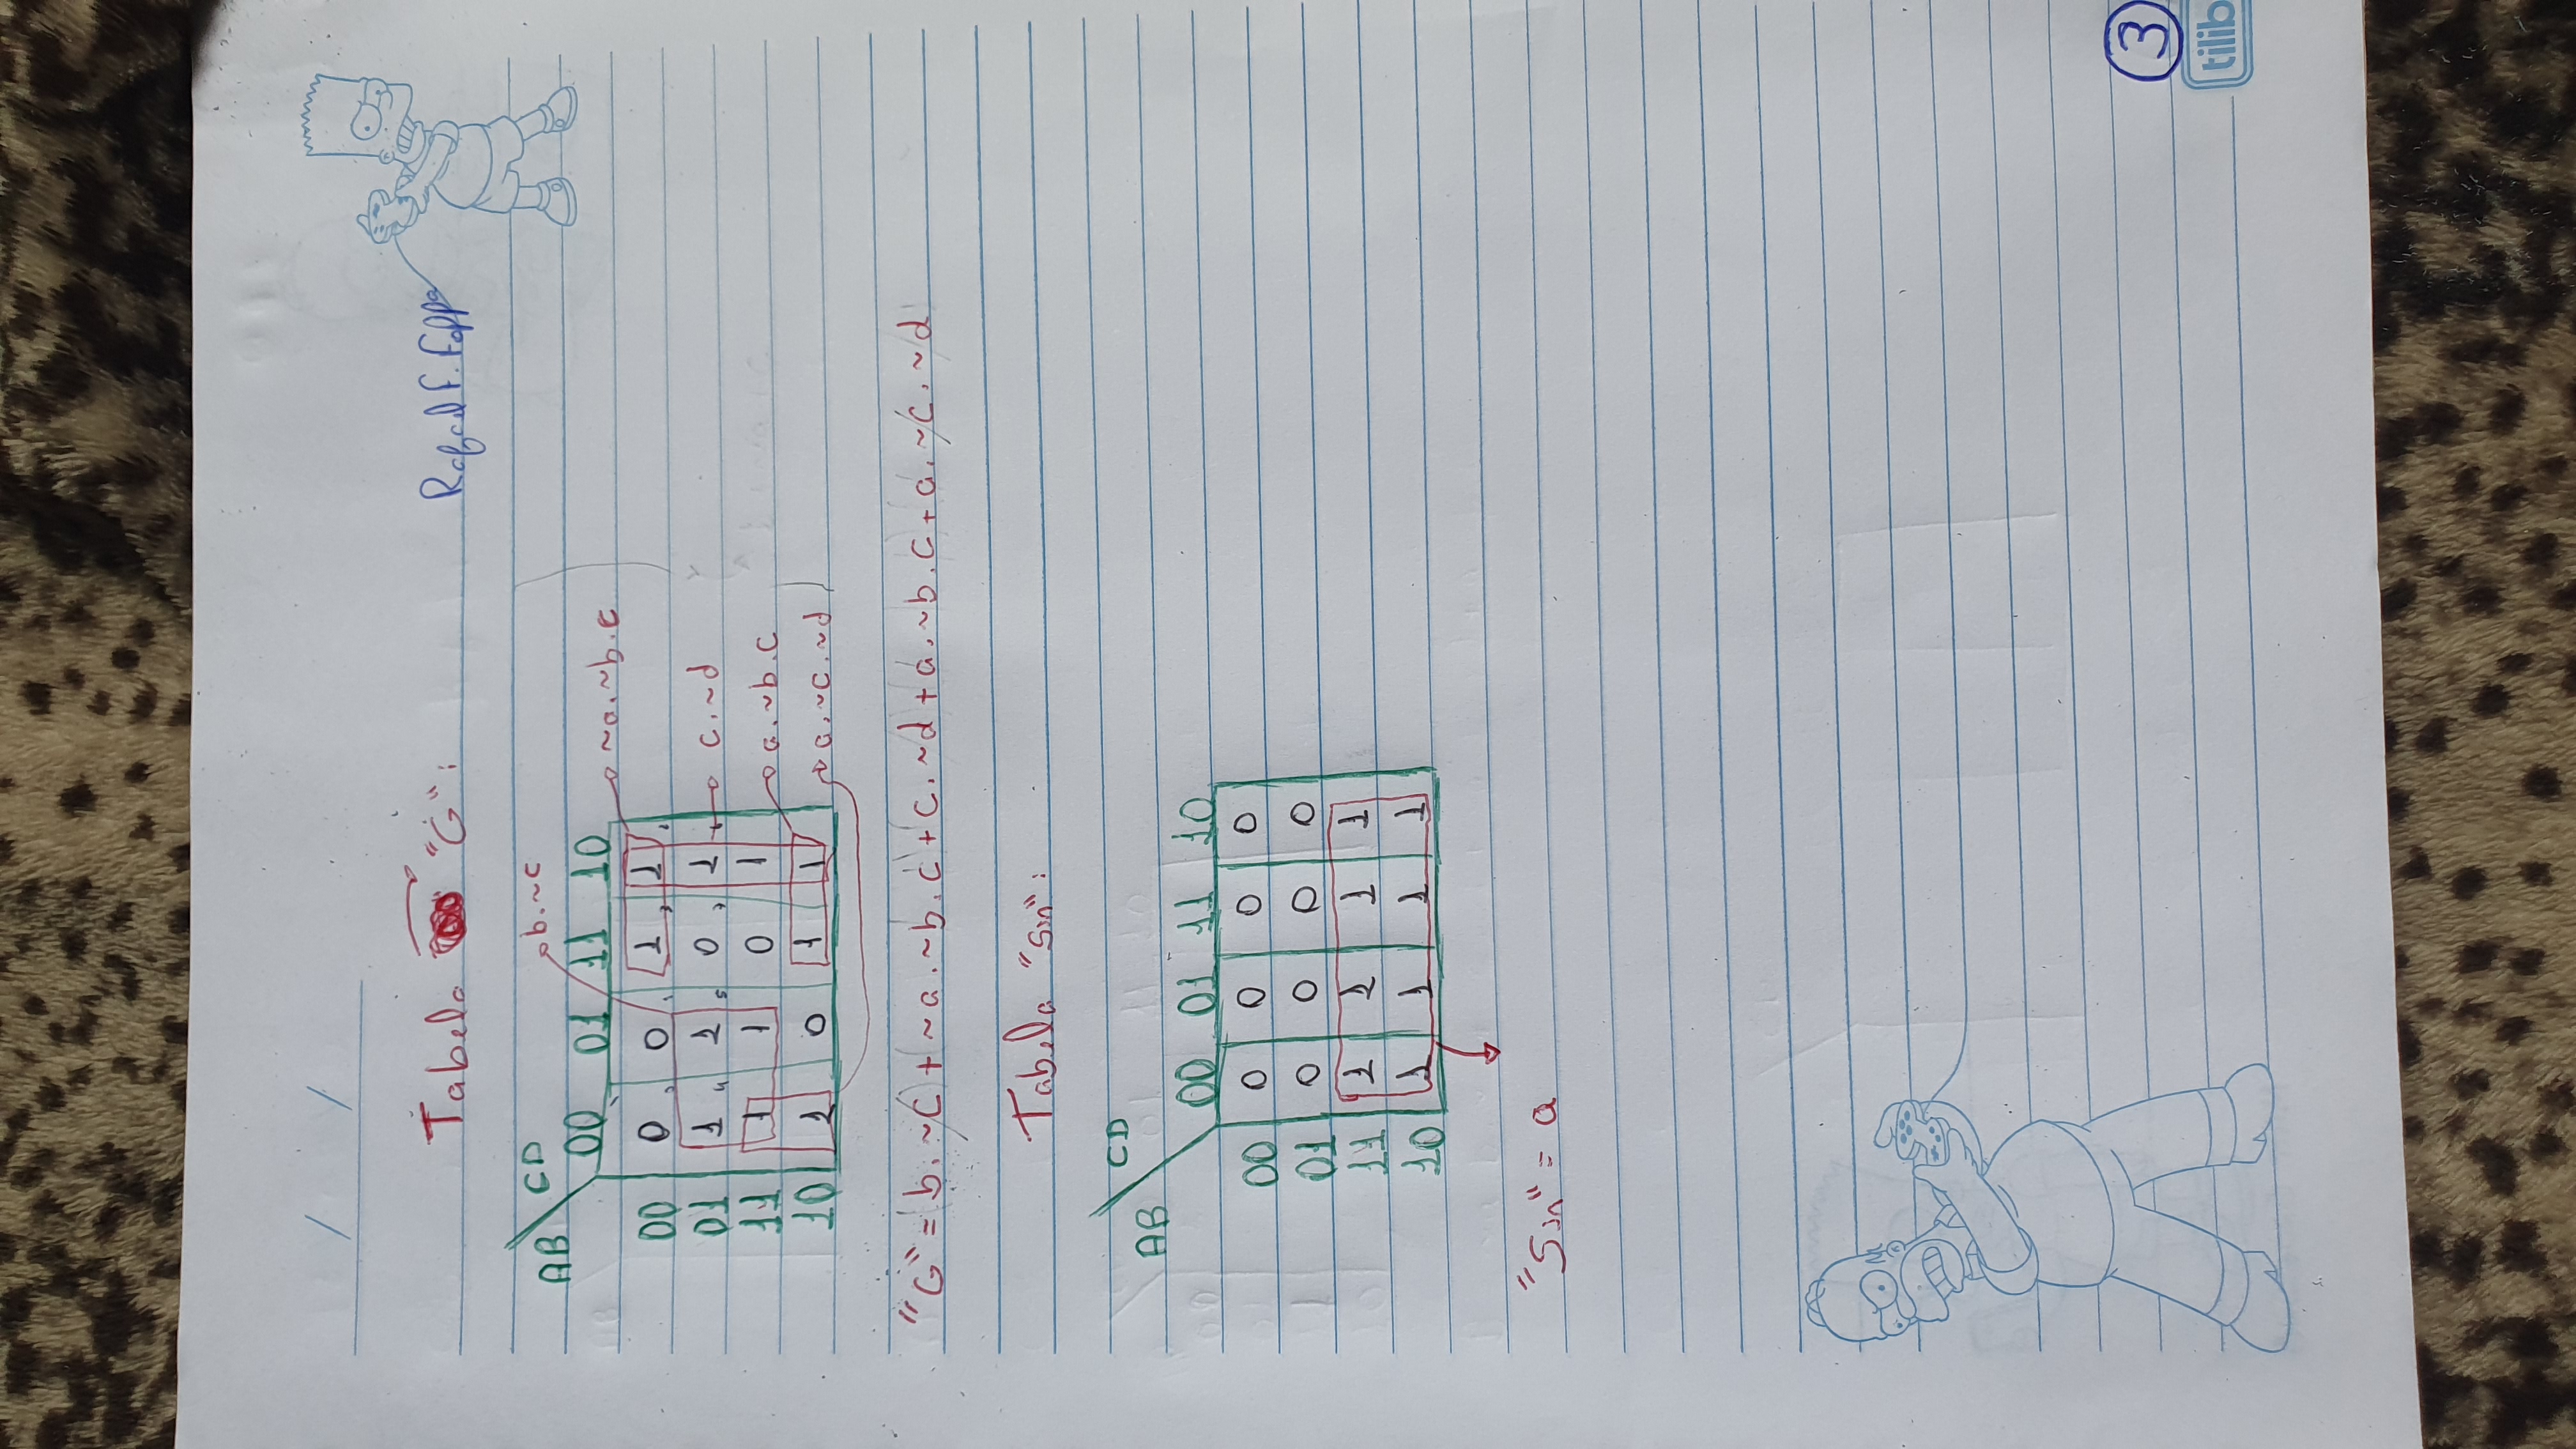 / /
Tabela "G":
Rafael F. Foppa
AB CD
b.~c
00 01 11 10
00 0 0 1 1 ~a.~b.c
01 1 1 0 1 c.~d
11 1 1 0 1 a.~b.c
10 1 0 1 1 a.~c.~d
"G"= b.~c + ~a.~b.c + c.~d + a.~b.c + a.~c.~d
Tabela "Sin":
AB CD
00 01 11 10
00 0 0 0 0
01 0 0 0 0
11 1 1 1 1
10 1 1 1 1
"Sin" = a
3
tilib